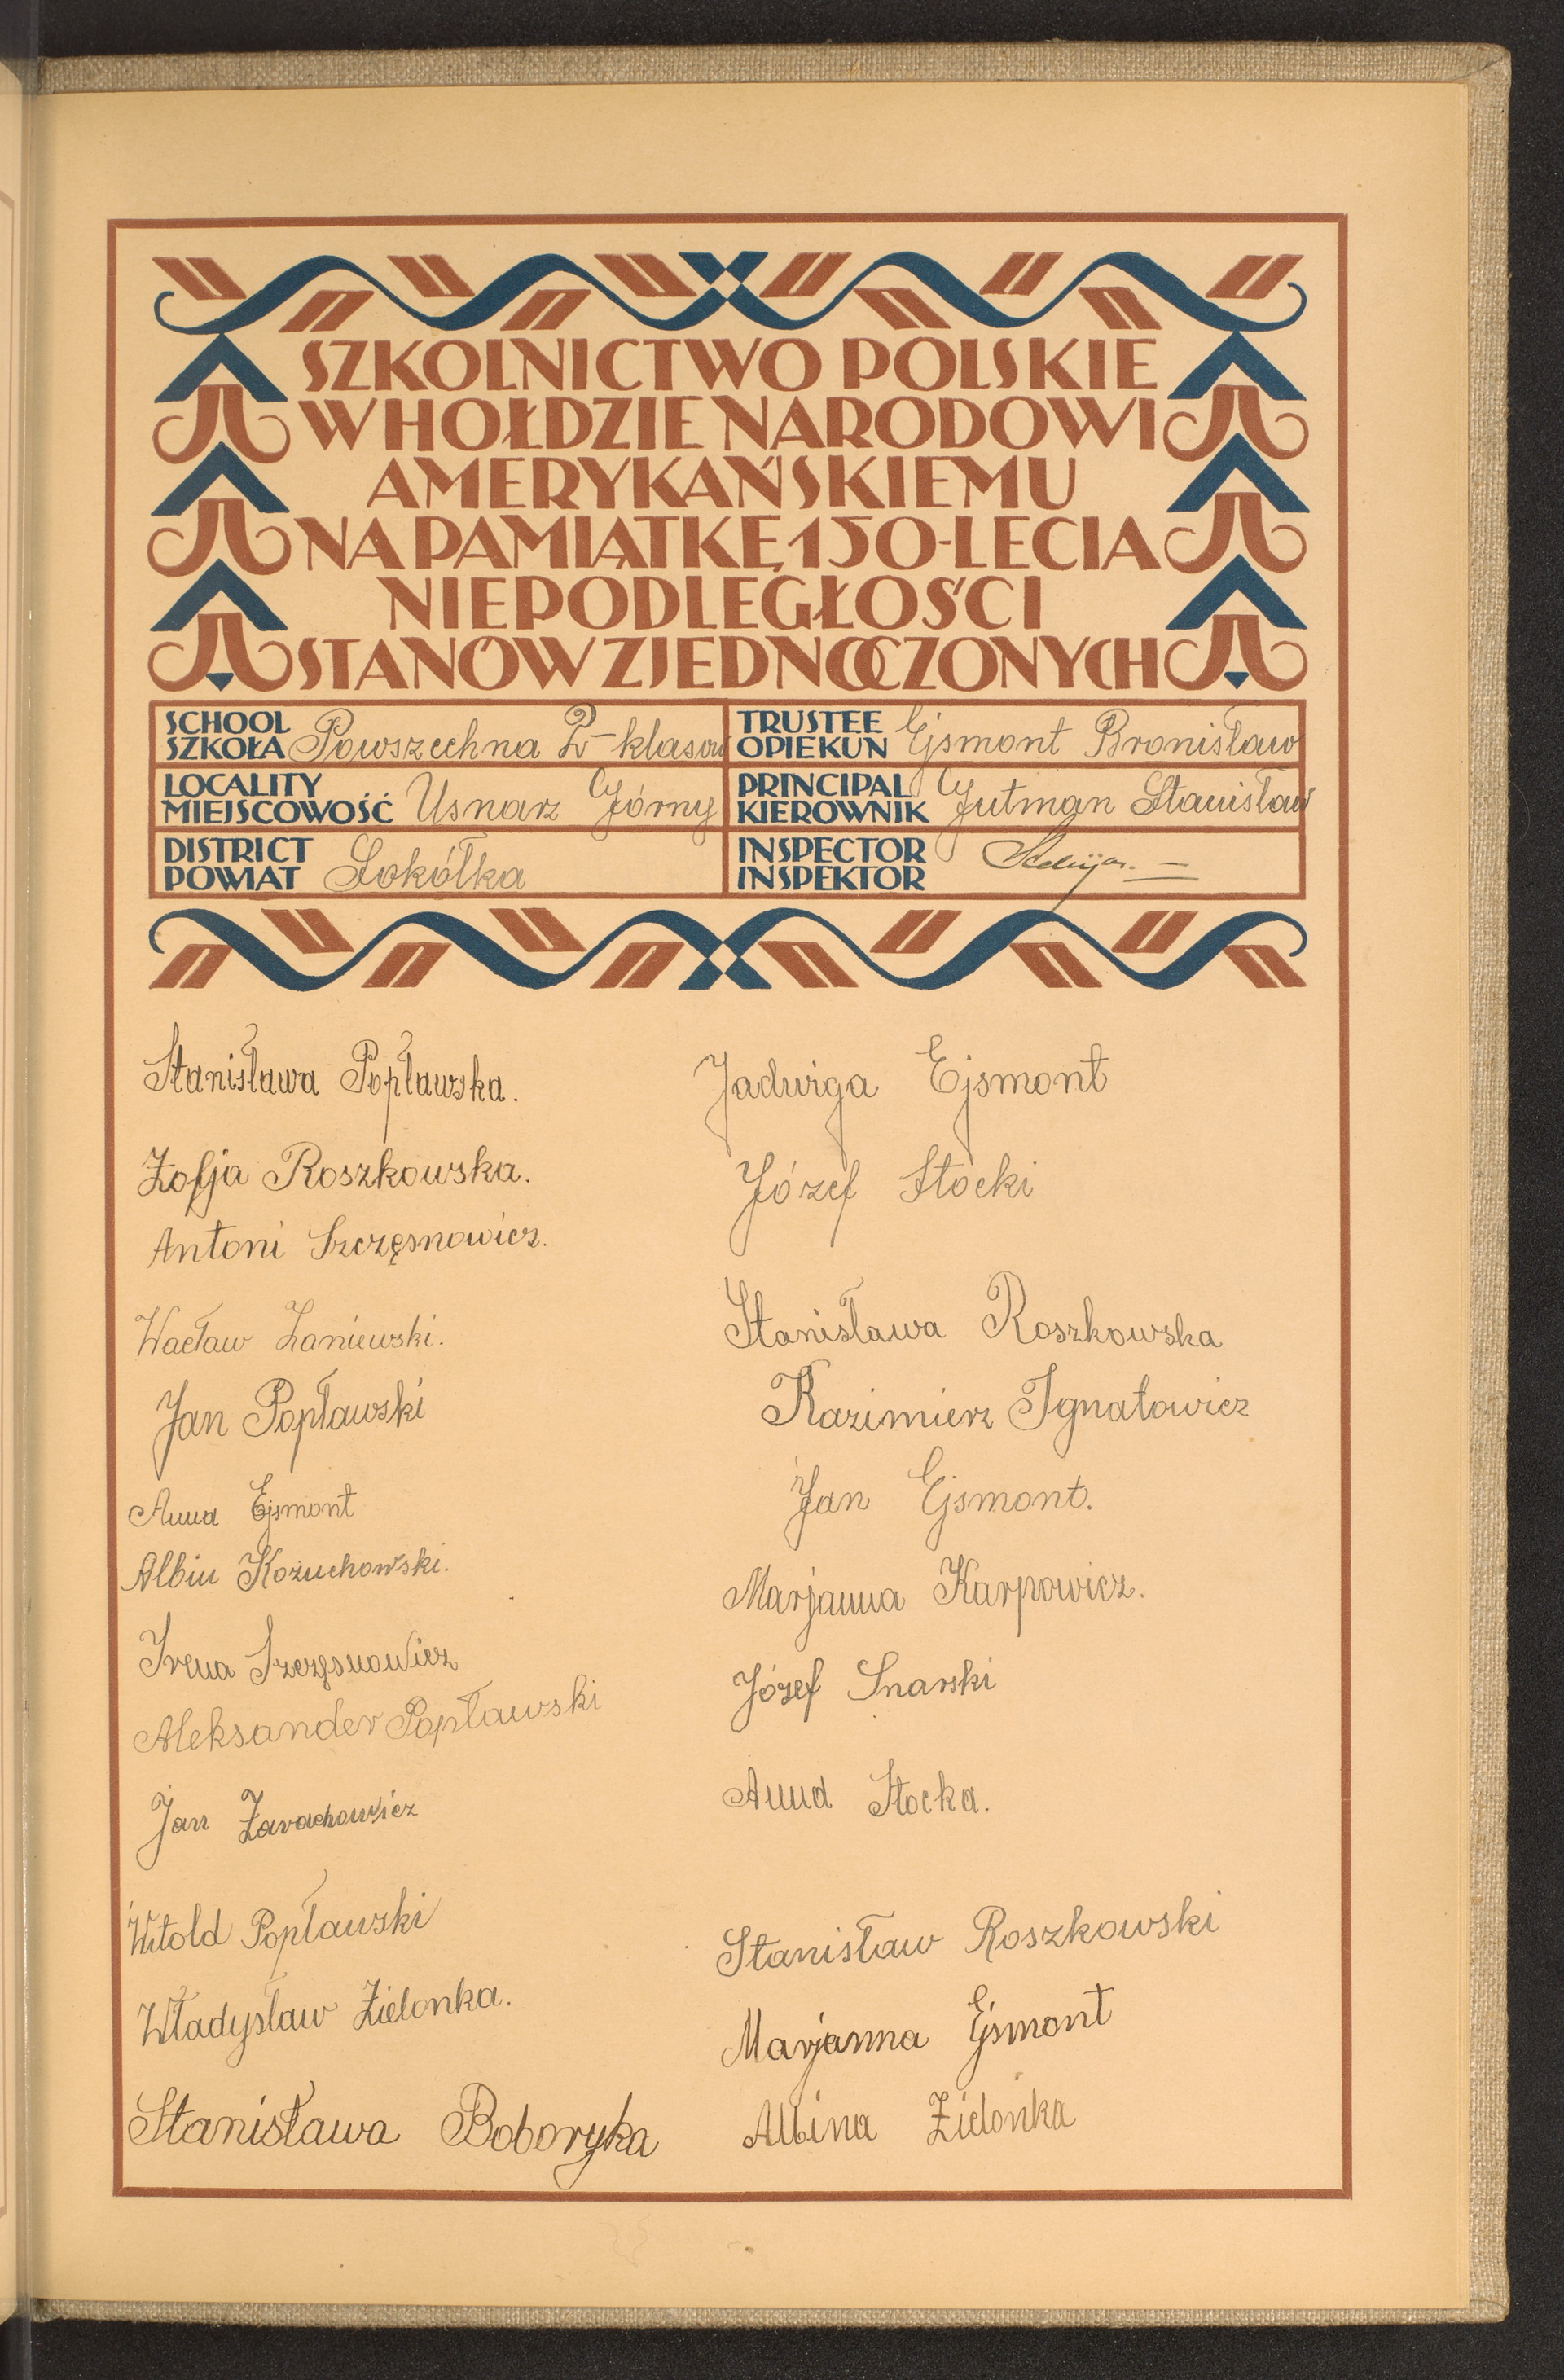 SZKOLNICTWO POLSKIE
W HOŁDZIE NARODOWI
AMERYKAŃSKIEMU
NA PAMIĄTKĘ 150-LECIA
NIEPODLEGŁOŚCI
STANÓW ZJEDNOCZONYCH
SCHOOL
SZKOŁA Powszechna 2-klasow
TRUSTEE
OPIEKUN Ejsmont Bronisław
LOCALITY
MIEJSCOWOŚĆ Usnarz Górny
PRINCIPAL
KIEROWNIK Gutman Stanisław
DISTRICT
POWIAT Sokółka
INSPECTOR
INSPEKTOR
Stanisława Popławska.
Zofja Roszkowska.
Antoni Szczęsnowicz.
Wacław Zaniewski.
Jan Popławski
Anna Ejsmont
Albin Kożuchowski.
Irena Szczęsnowicz
Aleksander Popławski
Jan Zarachowicz
Witold Popławski
Władysław Zielonka.
Stanisława Boboryka
Jadwiga Ejsmont
Józef Stocki
Stanisława Roszkowska
Kazimierz Ignatowicz
Jan Ejsmont.
Marjanna Karpowicz.
Józef Snarski
Anna Stocka.
Stanisław Roszkowski
Marjanna Ejsmont
Albina Zielonka